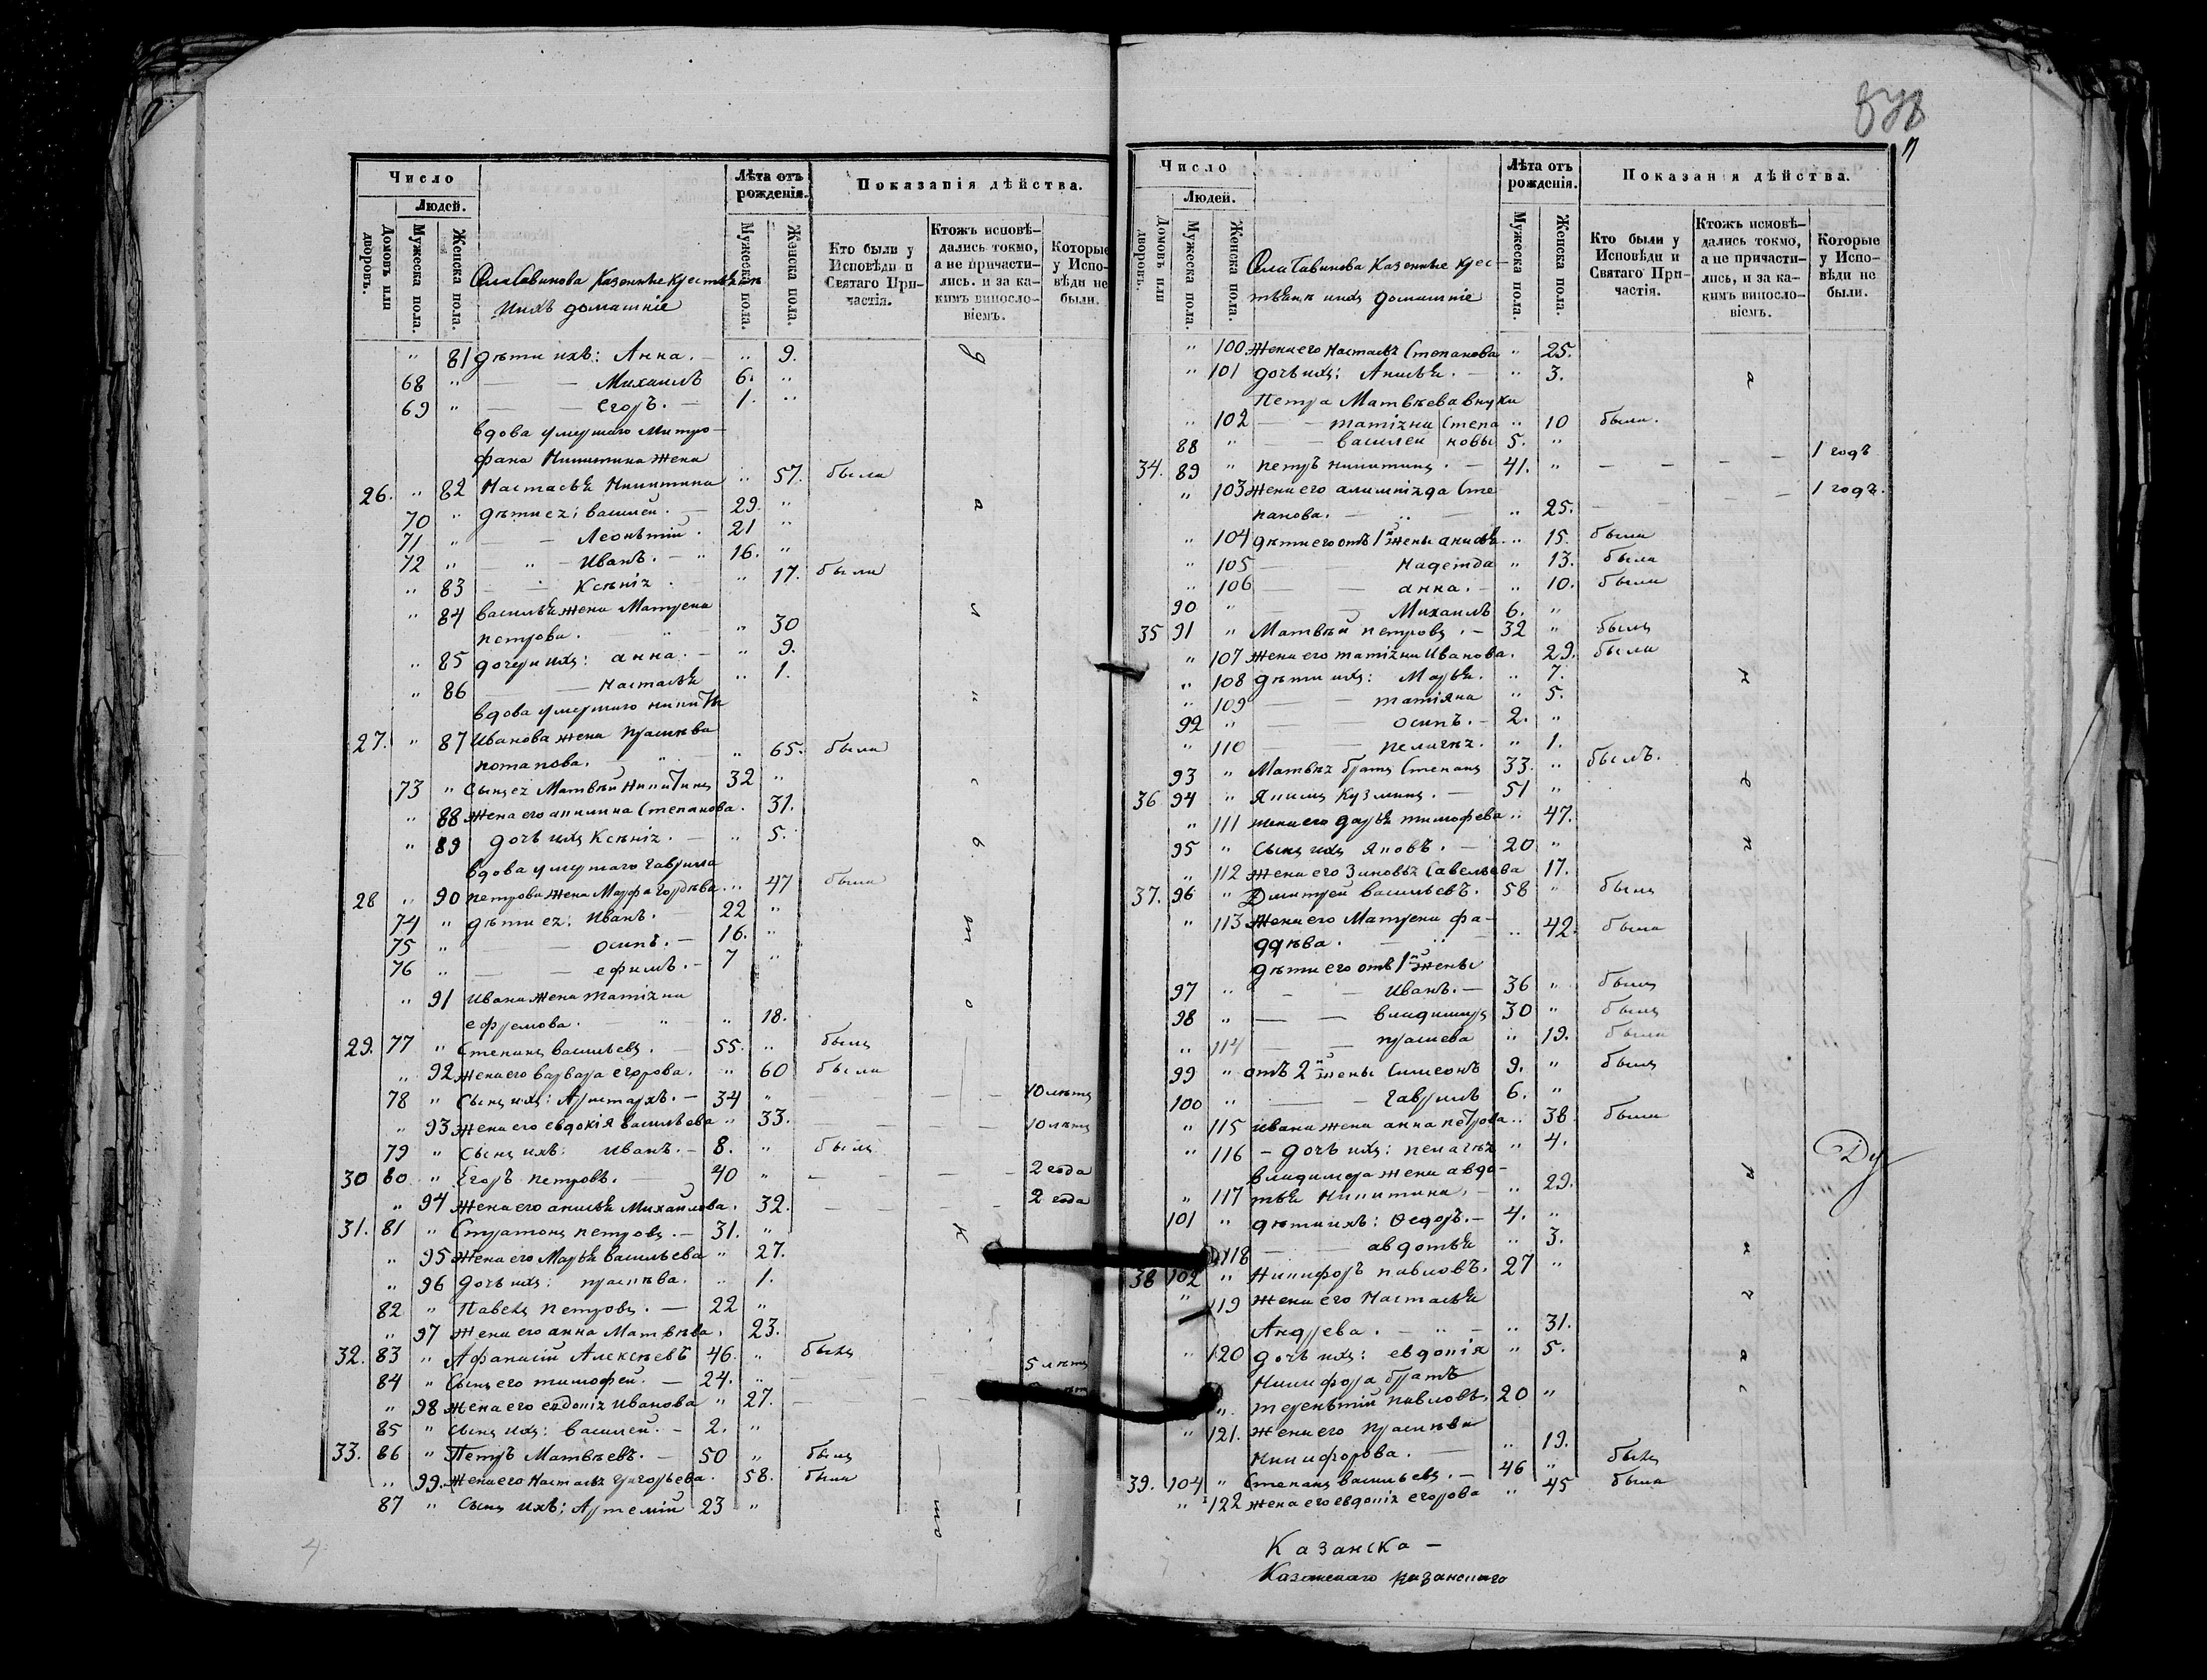 Число
Людей.
Лѣта отъ рожденія.
Показанія дѣйства.
Домовъ или дворовъ.
Мужеска пола.
Женска пола.
Села Савинова Казенные крестьяне
и ихъ домашніе
Мужеска пола.
Женска пола.
Кто были у Исповѣди и Святаго Причастія.
Ктожъ исповѣдались токмо, а не причастились. и за какимъ винословіемъ.
Которые у Исповѣди не были.
" 81 дѣти ихъ: Анна. — " 9.
68 " — — Михаилъ 6. "
69 " — — Егоръ. — 1. "
вдова умершаго Митро-
фана Никитина жена
26. " 82 Настасья Никитина " 57. была
70 " дѣти ея: василей. — 29. "
71 " — — Леонтій. 21 "
72 " — " — Иванъ. — " 16. "
" 83 — — Ксенія. — " 17. были
" 84 василья жена Матрена
петрова. — " — " 30
" 85 дочери ихъ: анна. — " 9.
" 86 — — настасья " 1.
вдова умершаго никиты
27. " 87 Иванова жена прасковья
потапова. — " — " 65. была
73 " Сынъ ея Матвѣй Никитинъ 32 "
" 88 жена его акилина Степанова. 31.
" 89 дочь ихъ Ксенія. — " 5.
вдова умершаго гаврила
28 " 90 петрова жена Марфа Гордѣева. " 47 была
74 " дѣти ея: Иванъ. — 22 "
75 " — осипъ. — 16. "
76 " — — ефимъ. — 7 "
" 91 ивана жена татіяна
ефремова. — " " 18.
29. 77 " Степанъ васильевъ. — 55. " былъ
" 92 жена его варвара егорова. " 60 была
78 " Сынъ ихъ: Аристархъ. — 34 " — — — — 10 лѣтъ
" 93 жена его евдокія васильева " 33. — — — 10 лѣтъ
79 " Сынъ ихъ: иванъ. — 8. " былъ
30 80 " Егоръ петровъ. — 40 " — — — — 2 года
" 94 жена его анисья Михайлова. 32. — — — — 2 года
31. 81 " Стратонъ петровъ. — 31. "
" 95 жена его Марья васильева " 27.
" 96 дочь ихъ: прасковья. " 1.
82 " Павелъ петровъ. — 22 "
" 97 жена его анна Матвѣева. 23.
32. 83 " Афанасій Алексѣевъ 46. " былъ
84 " Сынъ его тимофей. — 24. " — — 5 лѣтъ
" 98 жена его евдокія иванова " 27. — —
85 " Сынъ ихъ: василей. — 2. "
33. 86 " Петръ Матвѣевъ. — 50 " былъ
" 99. жена его настасья григорьева. 58. была
87 " Сынъ ихъ: Артемій 23 "
4
Число
Людей.
Лѣта отъ рожденія.
Показанія дѣйства.
Домовъ или дворовъ.
Мужеска пола.
Женска пола.
Села Савинова Казенные крес-
тьяне и ихъ домашніе
Мужеска пола.
Женска пола.
Кто были у Исповѣди и Святаго Причастія.
Ктожъ исповѣдались токмо, а не причастились, и за какимъ винословіемъ.
Которые у Исповѣди не были.
" 100 Жена его настасья Степанова " 25.
" 101 дочь ихъ: Анисья. — " 3.
Петра Матвѣева внуки
" 102 — — татіяна Степа " 10 была.
88 " — василей новы 5. "
34. 89 " петръ никитинъ. — 41. " — — — — 1 годъ
" 103 Жена его Сте
панова. — " — " 25. — — 1 годъ.
" 104 дѣти его отъ 1й жены анисья. " 15. была
" 105 — — надежда " 13. была
" 106 — — анна. — " 10. была
90 " — — Михаилъ 6. "
35 91 " Матвѣй петровъ. — 32 " былъ
" 107 Жена его татіяна Иванова. 29. была
" 108 дѣти ихъ: Марья. " 7.
" 109 — — татіяна " 5.
92 " — — осипъ. — 2. "
" 110 — — пелагея. " 1.
93 " Матвѣя братъ Степанъ 33. " былъ.
36 94 " Якимъ Кузминъ. — 51 "
" 111 жена его дарья тимофева " 47.
95 " Сынъ ихъ Яковъ. — 20 "
" 112 жена его Зиновья Савельева 17.
37. 96 " Дмитрей васильевъ. 58 " былъ
" 113 Жена его Матрена фа-
ддѣева. — " — " 42. была
дѣти его отъ 1й жены
97 " — — Иванъ. — 36 " былъ
98 " — — владимиръ 30 " былъ
" 114 — — " 19. была
99 " отъ 2й жены Симеонъ 9. " былъ
100 " — — гаврилъ 6. "
" 115 ивана жена анна петрова " 38 была
" 116 — дочь ихъ: пелагея " 4.
владимера жена авдо-
" 117 тья Никитина. — " 29.
101 " дѣти ихъ: Ѳедоръ. — 4. "
118 — — авдотья " 3.
38 102 " Никифоръ павловъ. 27 "
" 119 Жена его Настасья
Андрева. — " — " 31.
" 120 дочь ихъ: евдокія " 5.
Никифора братъ
" терентій павловъ. 20 "
" 121. Жена его прасковья
Никифорова. — " 19.
39. 104 " Степанъ васильевъ. — 46 " былъ
" 122 жена его евдокія егорова " 45 была
Казанска —
Казанскаго казанскаго